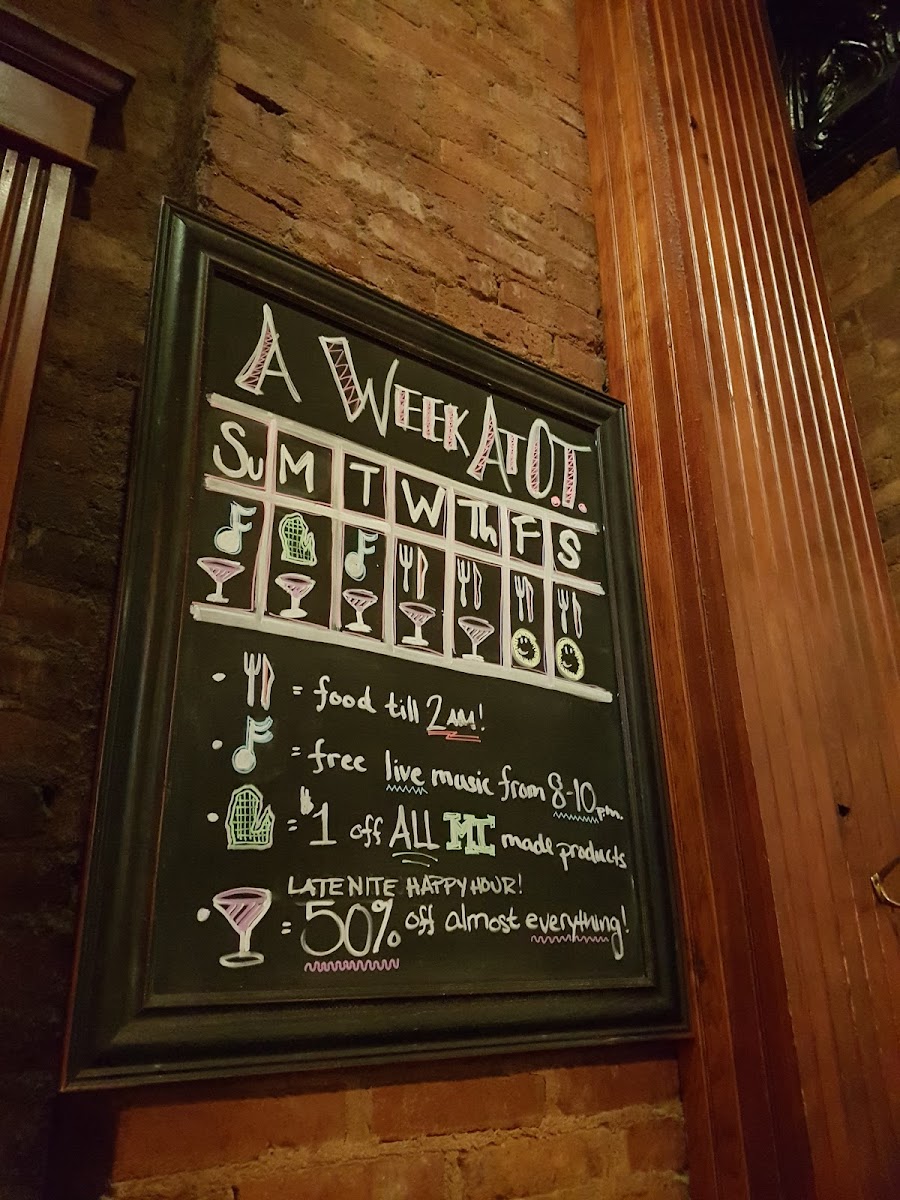 A WEEK AT O.T.
Su M T W Th F S
= food till 2AM!
= free live music from 8-10pm.
= $1 off ALL MI made products
LATE NITE HAPPY HOUR!
= 50% off almost everything!